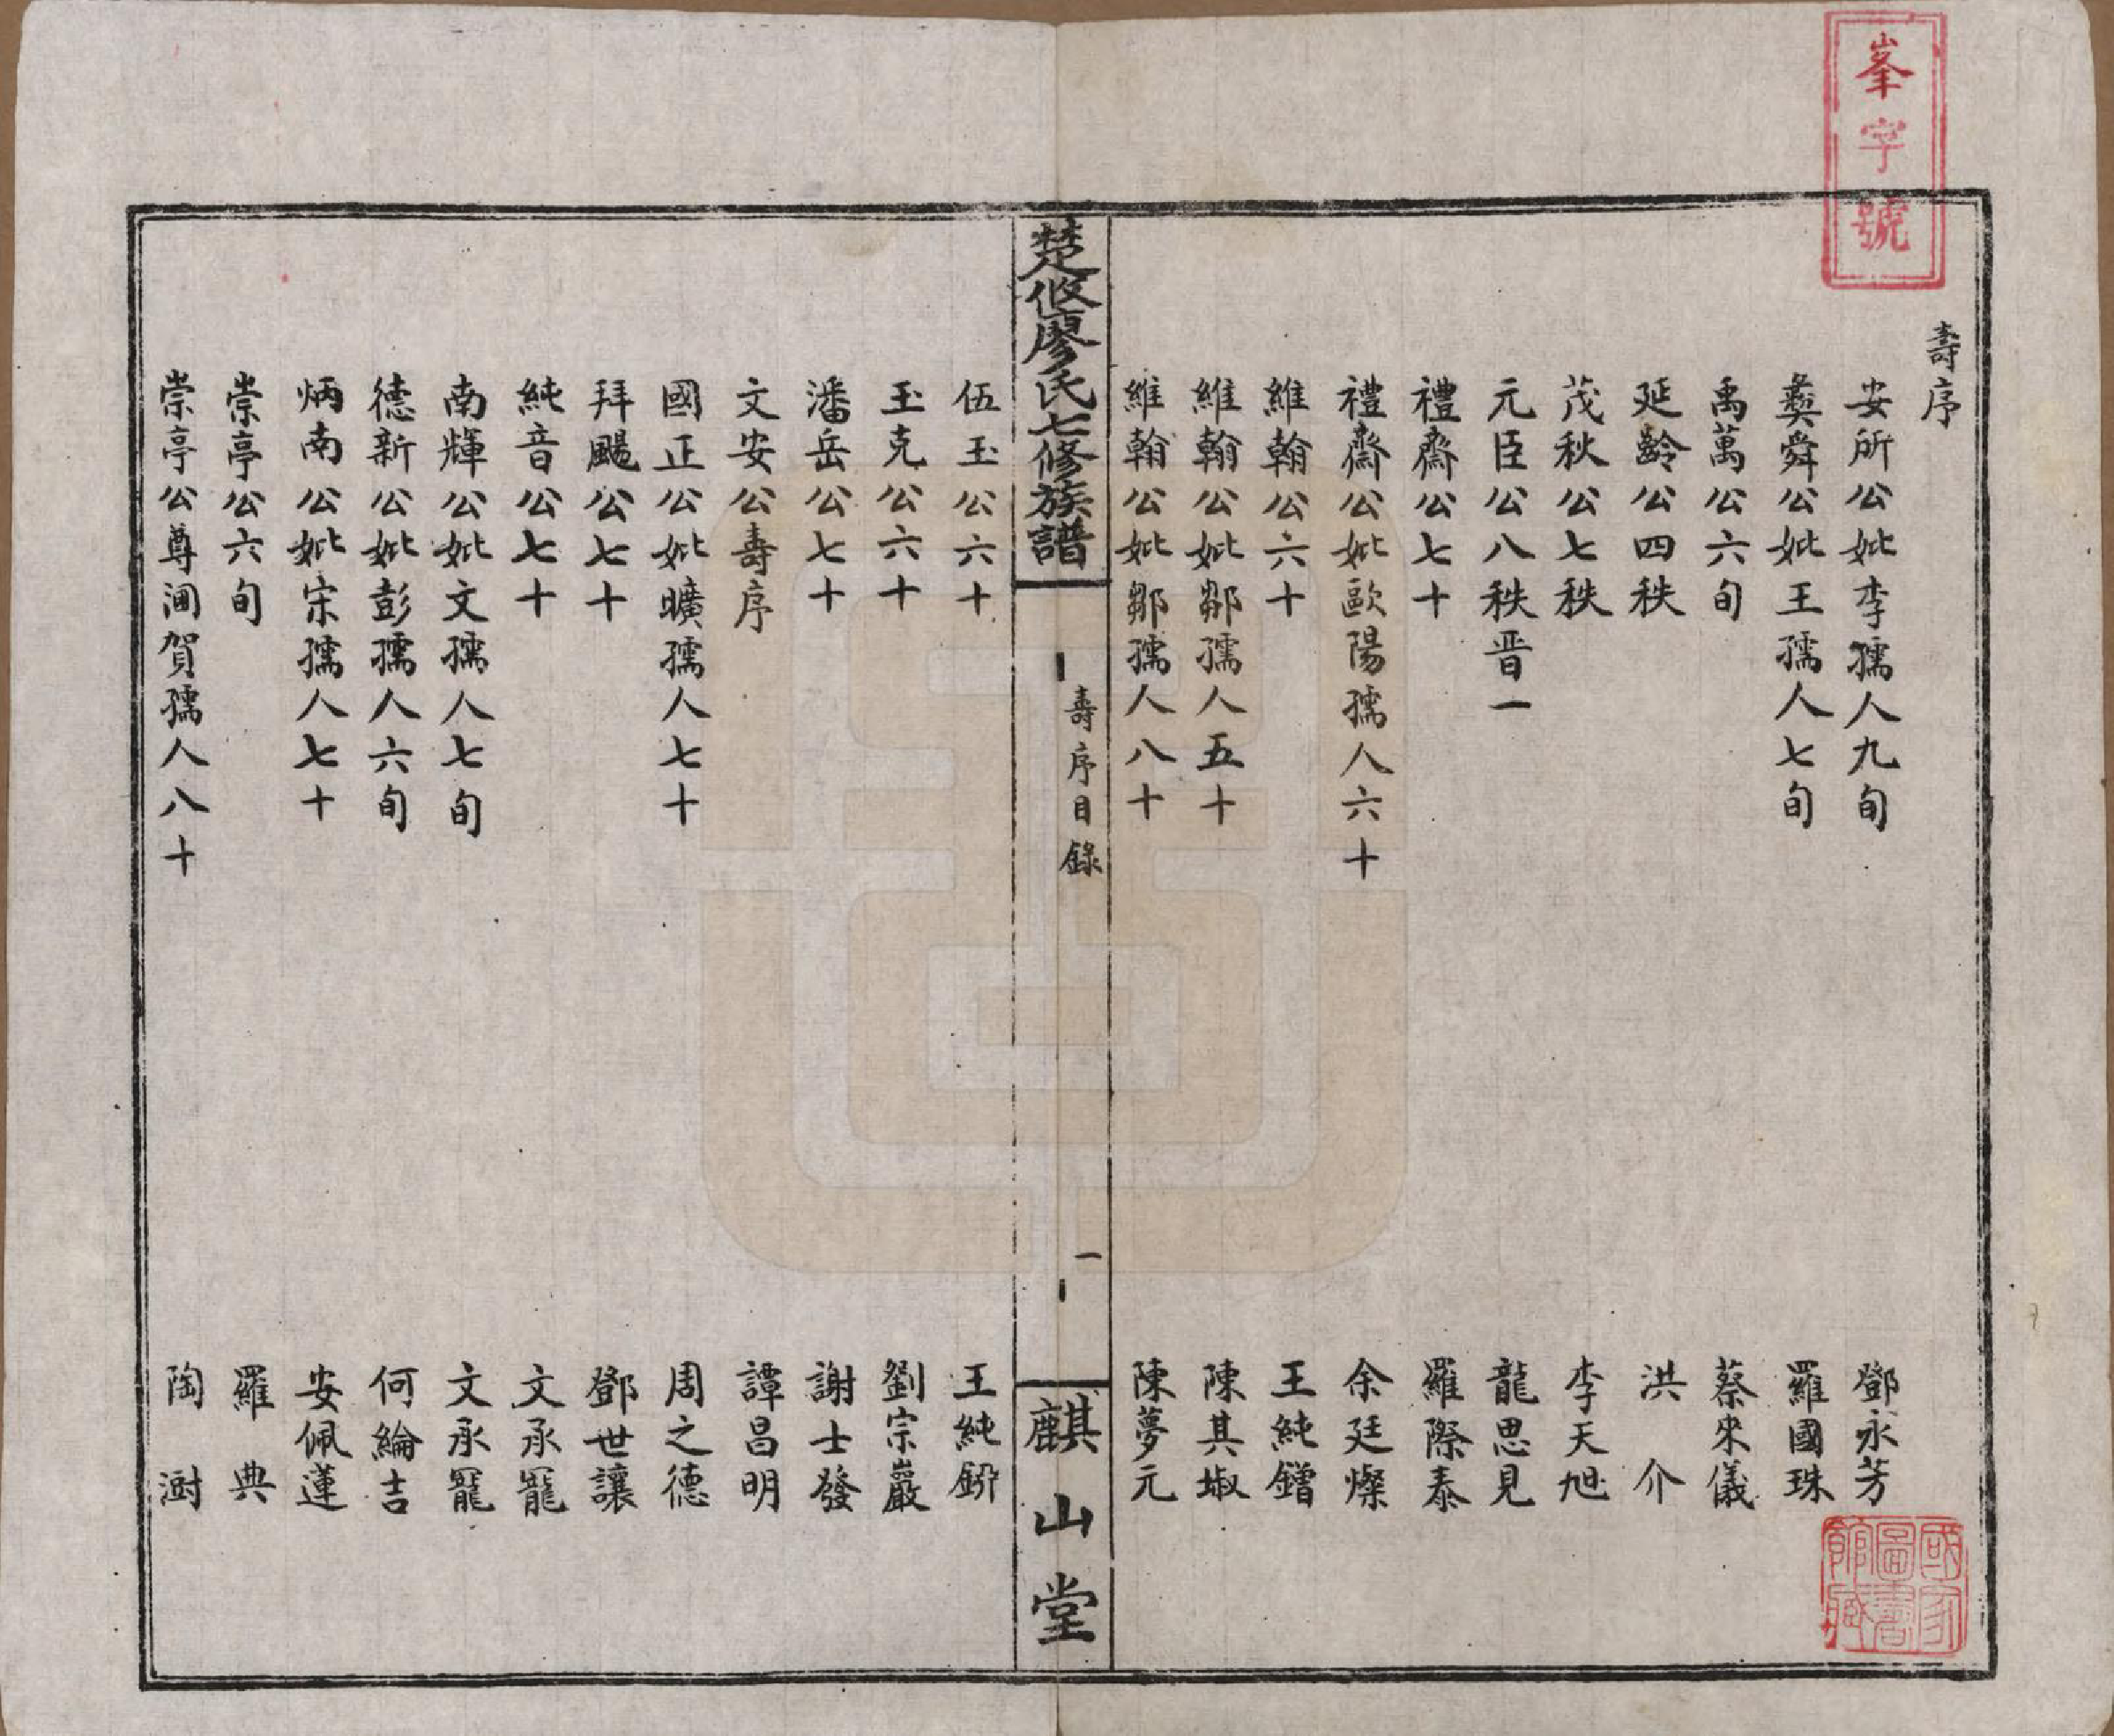 峯字號
壽序
安所公妣李孺人九旬 鄧永芳
彝舜公妣王孺人七旬 羅國珠
禹萬公六旬 蔡來儀
延齡公四秩 洪介
茂秋公七秩 李天旭
元臣公八秩晋一 龍思見
禮齋公七十 羅際泰
禮齋公妣歐陽孺人六十 余廷燦
維翰公六十 王純鐕
維翰公妣鄒孺人五十 陳其埱
維翰公妣鄒孺人八十 陳夢元
楚攸廖氏七修族譜 壽序目錄 一 麒山堂
伍玉公六十 王純
玉克公六十 劉宗巖
潘岳公七十 謝士發
文安公壽序 譚昌明
國正公妣曠孺人七十 周之德
拜颺公七十 鄧世讓
純音公七十 文承寵
南輝公妣文孺人七旬 文承寵
德新公妣彭孺人六旬 何綸吉
炳南公妣宋孺人七十 安佩蓮
崇亭公六旬 羅典
崇亭公尊閫賀孺人八十 陶澍
國家圖書館藏